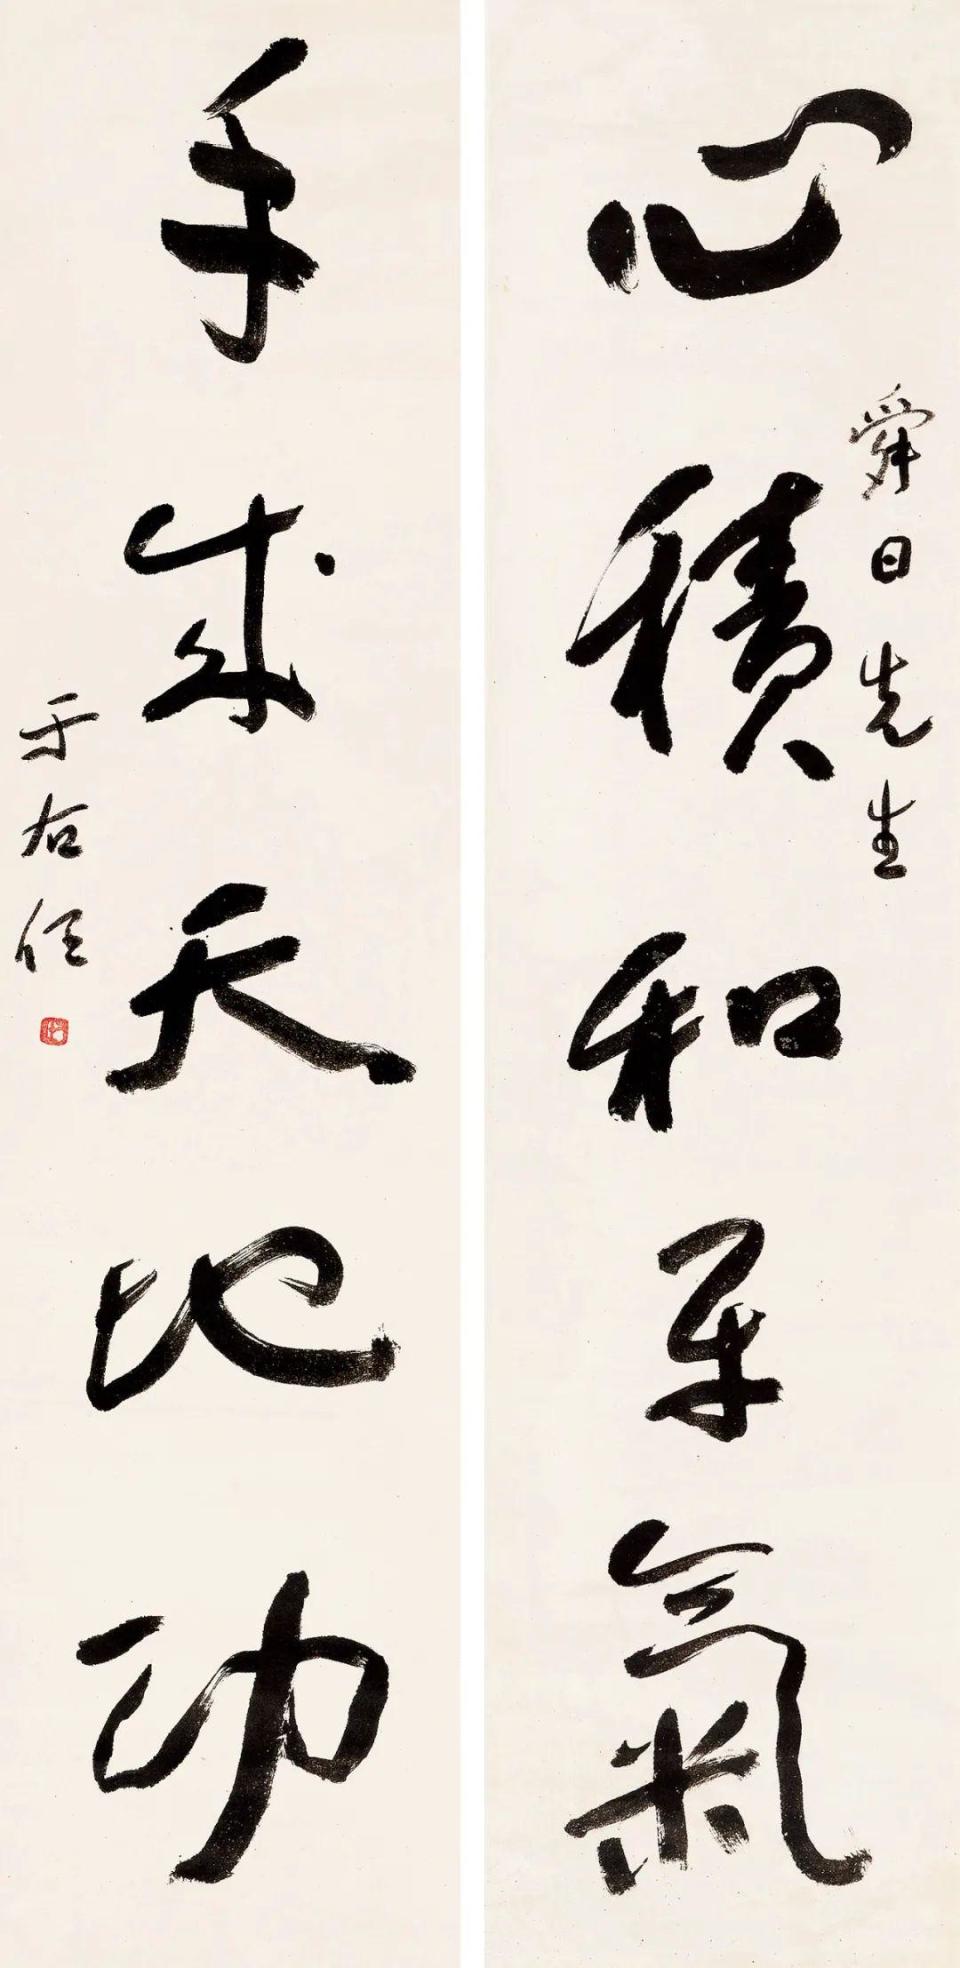 舜日先生
心積和平氣
手成天地功
于右任